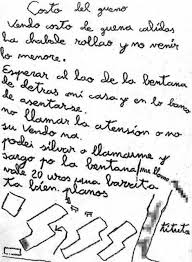 Costo del gueno
Vendo costo de guena calidas
ta chabale rollao y no venir
lo menore.
Esperar al lao de la bentana
de detras mi casa y en lo banco
de asentarse.
no llamar la atension o no
su vendo na.
podei silvar o llamarme y
sargo po la bentana me llamo
vale 20 uros una barrita
ta bien planos
tituta